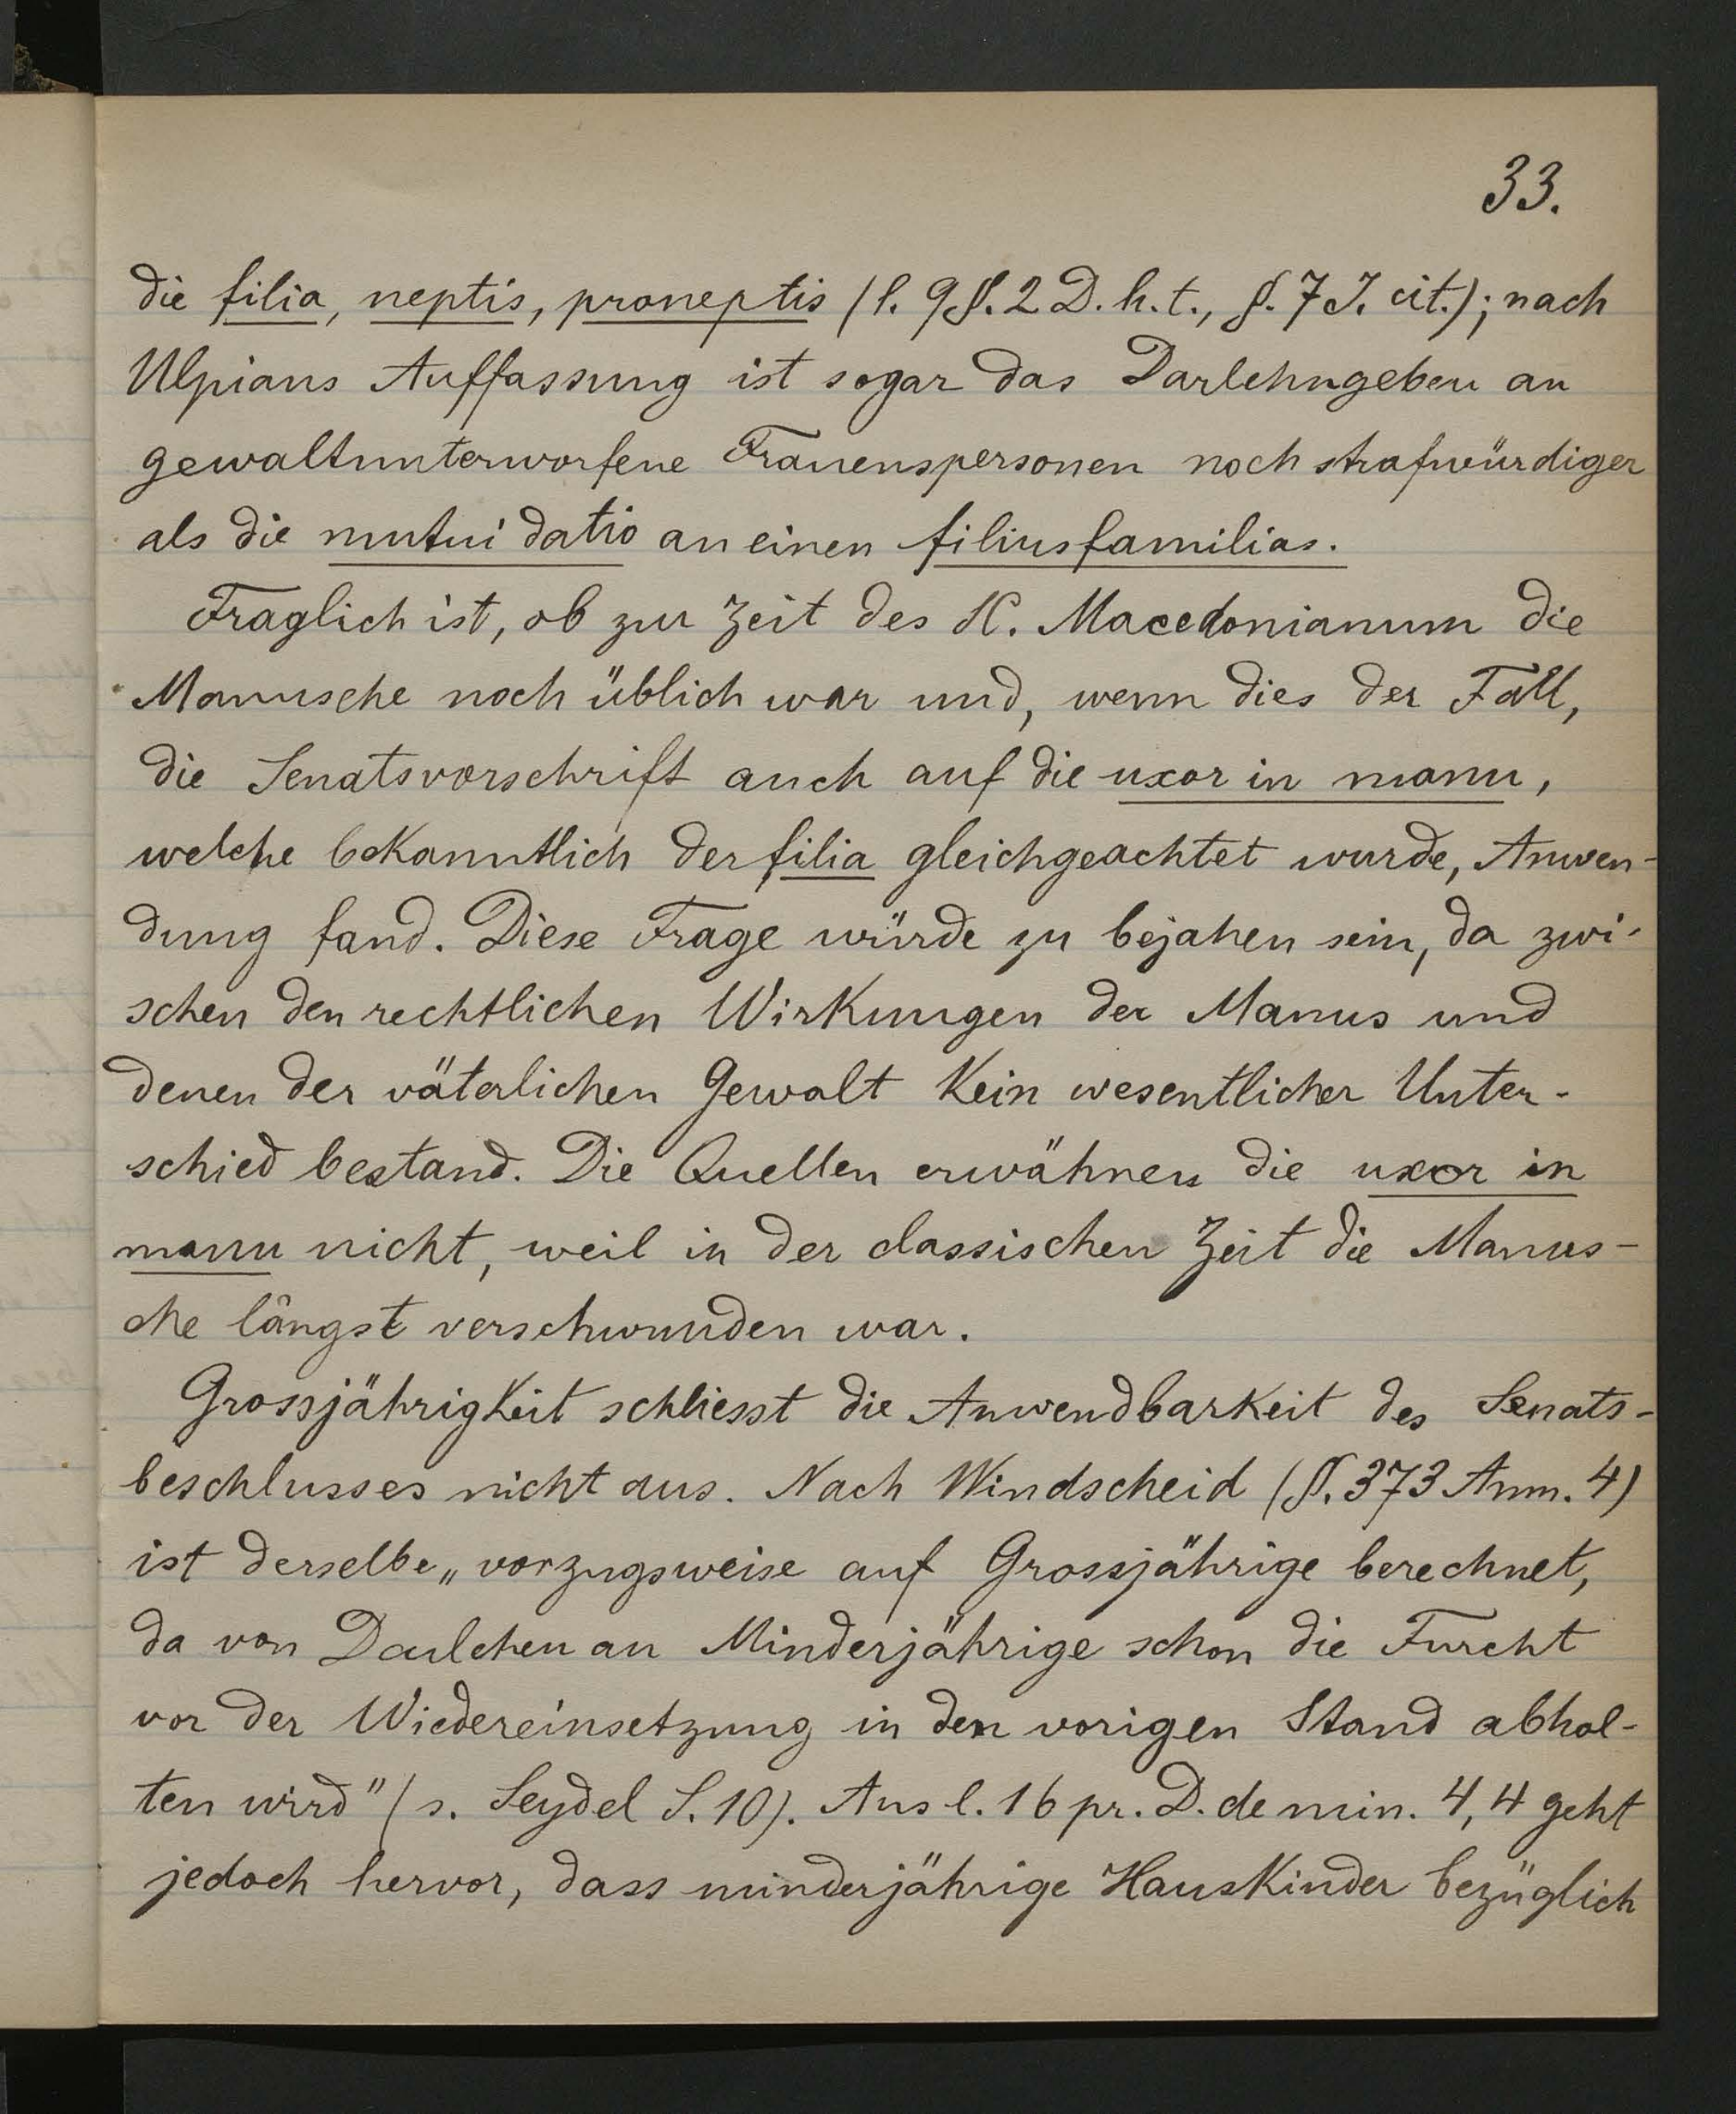 33.
die filia, neptis, proneptis (l. 9 §. 2 D. h. t., §. 7 J. cit.); nach
Ulpians Auffassung ist sogar das Darlehngeben an
gewaltunterworfene Frauenspersonen noch strafwürdiger
als die mutui datio an einen filiusfamilias.
Fraglich ist, ob zur Zeit des SC. Macedonianum die
Manusehe noch üblich war und, wenn dies der Fall,
die Senatsvorschrift auch auf die uxor in manu,
welche bekanntlich der filia gleichgeachtet wurde, Anwen-
dung fand. Diese Frage würde zu bejahen sein, da zwi-
schen den rechtlichen Wirkungen der Manus und
denen der väterlichen Gewalt kein wesentlicher Unter-
schied bestand. Die Quellen erwähnen die uxor in
manu nicht, weil in der classischen Zeit die Manus-
ehe längst verschwunden war.
Grossjährigkeit schliesst die Anwendbarkeit des Senats-
beschlusses nicht aus. Nach Windscheid (§. 373 Anm. 4)
ist derselbe „vorzugsweise auf Grossjährige berechnet,
da von Darlehen an Minderjährige schon die Furcht
vor der Wiedereinsetzung in den vorigen Stand abhal-
ten wird" (s. Seydel S. 10). Aus l. 16 pr. D. de min. 4, 4 geht
jedoch hervor, dass minderjährige Hauskinder bezüglich